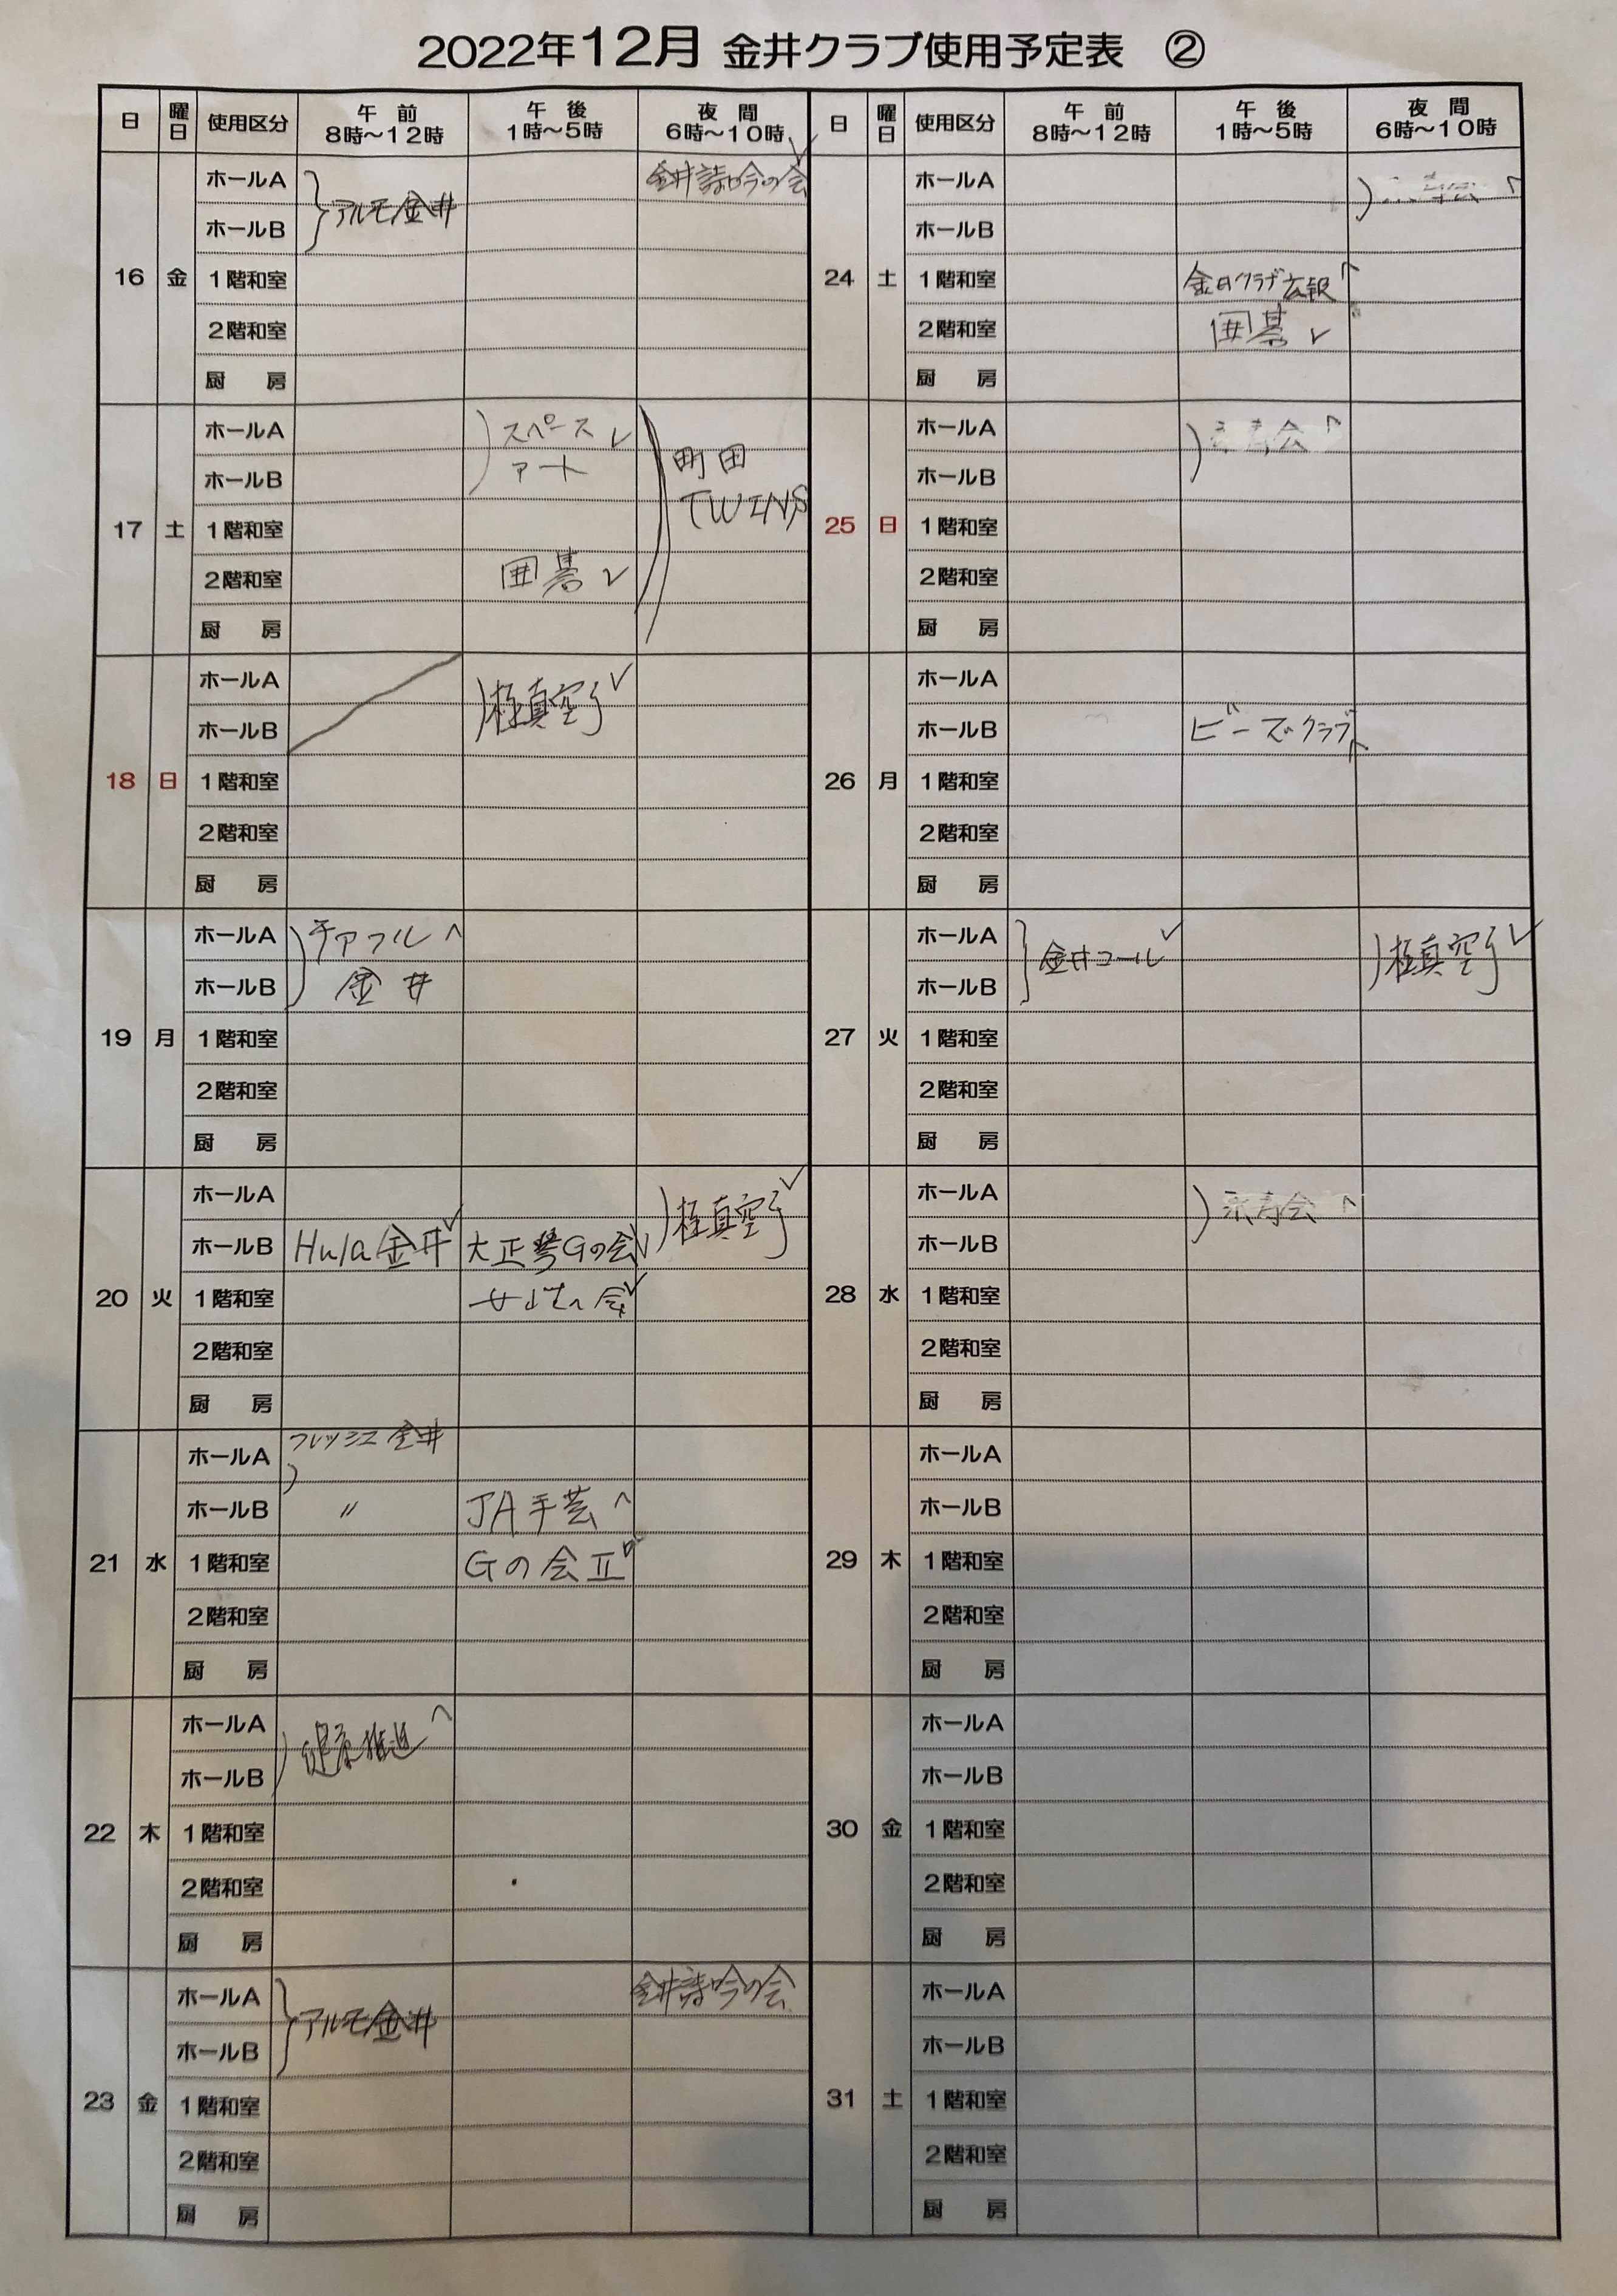 2022年12月 金井クラブ使用予定表 ②
日 曜日 使用区分 午前 8時〜12時 午後 1時〜5時 夜間 6時〜10時
16 金
ホールA 金井詩吟の会
アルモ金井
ホールB
1階和室
2階和室
厨 房
17 土
ホールA スペース
アート
町田
TWINS
ホールB
1階和室
2階和室 囲碁
厨 房
18 日
ホールA 極真空手
ホールB
1階和室
2階和室
厨 房
19 月
ホールA チアフル
ホールB 金井
1階和室
2階和室
厨 房
20 火
ホールA 極真空手
ホールB Hula金井 大正琴Gの会
1階和室
2階和室
厨 房
21 水
ホールA フレッシュ金井
ホールB 〃 JA手芸
1階和室 Gの会Ⅱ
2階和室
厨 房
22 木
ホールA 健康推進
ホールB
1階和室
2階和室
厨 房
23 金
ホールA 金井詩吟の会
アルモ金井
ホールB
1階和室
2階和室
厨 房
日 曜日 使用区分 午前 8時〜12時 午後 1時〜5時 夜間 6時〜10時
24 土
ホールA
ホールB
1階和室 金井クラブ広報
2階和室 囲碁
厨 房
25 日
ホールA
ホールB
1階和室
2階和室
厨 房
26 月
ホールA
ホールB ビーズクラブ
1階和室
2階和室
厨 房
27 火
ホールA 金井コール 極真空手
ホールB
1階和室
2階和室
厨 房
28 水
ホールA 永寿会
ホールB
1階和室
2階和室
厨 房
29 木
ホールA
ホールB
1階和室
2階和室
厨 房
30 金
ホールA
ホールB
1階和室
2階和室
厨 房
31 土
ホールA
ホールB
1階和室
2階和室
厨 房